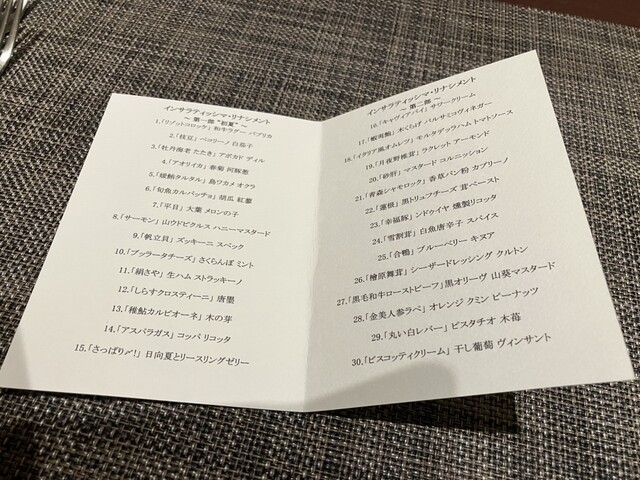 インサラティッシマ・リナシメント
~ 第一部 "初夏" ~
1.「リゾットコロッケ」和牛ラグー パプリカ
2.「枝豆」ペコリーノ 白茄子
3.「牡丹海老 たたき」アボカド ディル
4.「アオリイカ」春菊 河豚葱
5.「縞鯵タルタル」島ワカメ オクラ
6.「旬魚カルパッチョ」胡瓜 紅蓼
7.「平目」大葉 メロンの子
8.「サーモン」山ウドピクルス ハニーマスタード
9.「帆立貝」ズッキーニ スペック
10.「ブッラータチーズ」さくらんぼ ミント
11.「絹さや」生ハム ストラッキーノ
12.「しらすクロスティーニ」唐墨
13.「稚鮎カルピオーネ」木の芽
14.「アスパラガス」コッパ リコッタ
15.「さっぱり〆!」日向夏とリースリングゼリー
インサラティッシマ・リナシメント
~ 第二部 ~
16.「キャヴィアパイ」サワークリーム
17.「蝦夷鮑」木くらげ バルサミコヴィネガー
18.「イタリア風オムレツ」モルタデッラハム トマトソース
19.「月夜野椎茸」ラクレット アーモンド
20.「砂肝」マスタード コルニッション
21.「青森シャモロック」香草パン粉 カプリーノ
22.「蓮根」黒トリュフチーズ 茸ペースト
23.「幸福豚」ンドゥイヤ 燻製リコッタ
24.「雪割茸」白魚唐辛子 スパイス
25.「合鴨」ブルーベリー キヌア
26.「檜原舞茸」シーザードレッシング クルトン
27.「黒毛和牛ローストビーフ」黒オリーヴ 山葵マスタード
28.「金美人参ラペ」オレンジ クミン ピーナッツ
29.「丸い白レバー」ピスタチオ 木苺
30.「ビスコッティクリーム」干し葡萄 ヴィンサント